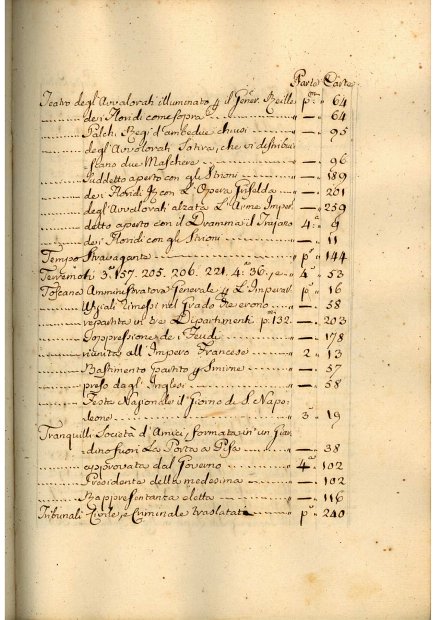 Parte Carte
Teatro degl'Avvalorati illuminato p il Gener. Reille " pma " 64
de i Floridi come sopra " — " 64
Palchi Regi d'ambedue chiusi " — " 95
degl'Avvalorati Satira, che vi distribui
scano due Maschere " — " 96
Suddetto aperto con gli Strioni " — " 189
de i Floridi con L'Opera Griselda " — " 201
degl'Avvalorati alzata L'Arme Imper. " — " 259
detto aperto con il Dramma il Trajano " 4a " 9
de i Floridi con gli Strioni " — " 11
Tempo Stravagante " pa " 144
Terremoti 3a 157. 205. 206. 221. 4a 36. e " 4a " 53
Toscana Amministratora Generale p L'Imperat. " pa " 16
Uziali rimessi nel Grado " — " 58
repartita in tre Dipartimenti pa 132 " — " 203
Soppressione de i Feudi " — " 178
riunita all'Impero Francese " 2 " 13
Bastimento partito p Smirne " — " 57
preso dagl'Inglesi " — " 58
Festa Nazionale il Giorno di S. Napo
leone " 3a " 19
Tranquilli Società d'Amici formata in un Giar
dino fuori La Porta a Pisa " — " 38
approvata dal Governo " 4a " 102
Presidente della medesima " — " 102
Rappresentanza eletta " — " 116
Tribunali Civile, e Criminale traslatati " pa " 240